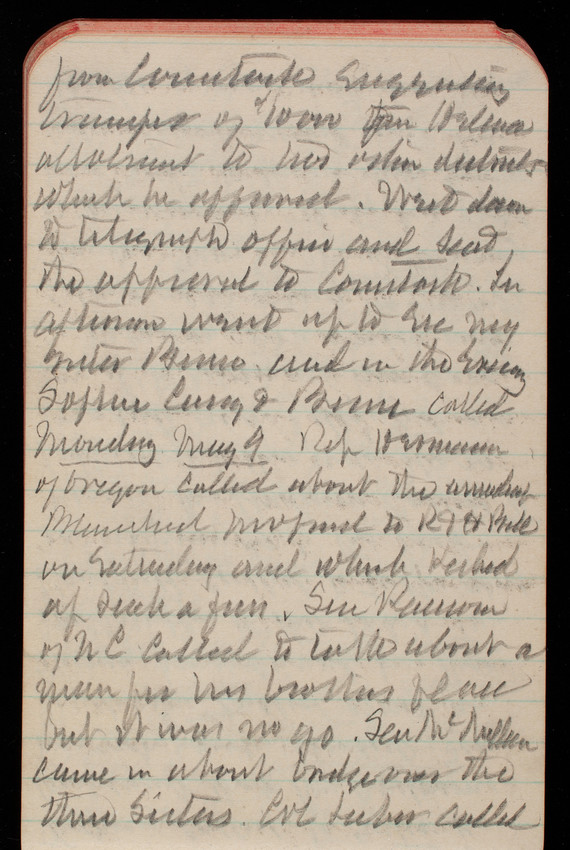 from Comstock suggesting
transfer of
allotment to his
which he approved. Went down
to telegraph office and sent
the approval to Comstock. In
afternoon went up to see my
sister and in the Evening
Sophie called
Monday May 9 Rep Hermann
of Oregon called about the
proposed to R & H Bill
on Saturday and which kicked
up such a fuss. Sen Ransom
of NC called to talk about a
man for his brothers place
but it was no go. Sen McMillan
came in about bridge over the
three Sisters. Col called